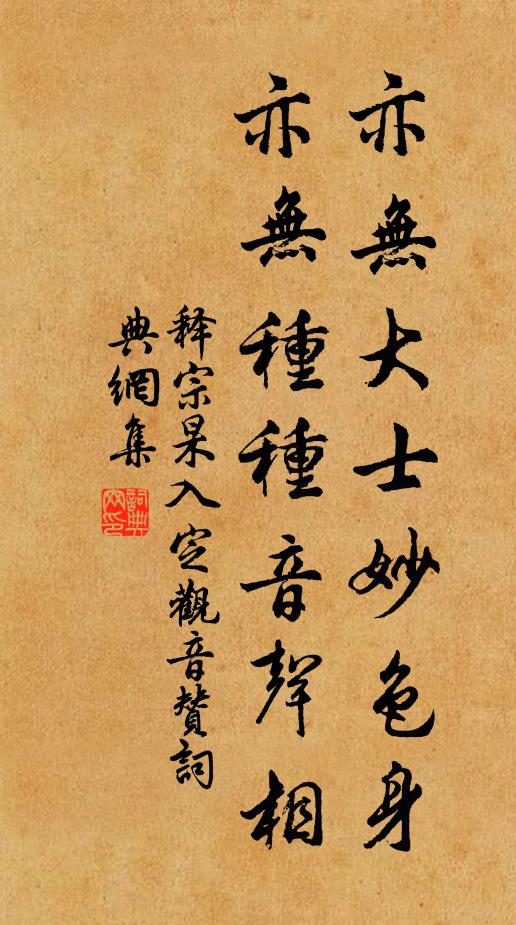 亦無大士妙色身
亦無種種音聲相
释宗杲入定觀音贊詞
典網集
詞典網印